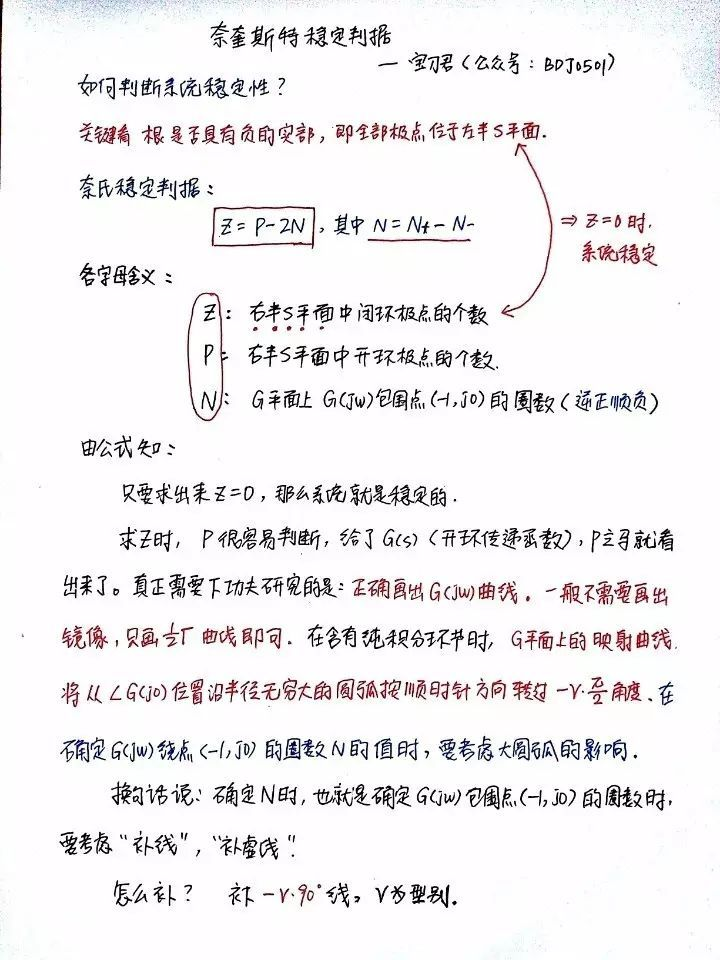 奈奎斯特稳定判据
— 宝刀君（公众号：BDJ0501）
如何判断系统稳定性？
关键看 根是否具有负的实部，即全部极点位于左半S平面.
奈氏稳定判据：
Z = P-2N，其中 N = N+ - N-
⇒ Z=0时,
系统稳定
各字母含义：
Z：右半S平面中闭环极点的个数
P：右半S平面中开环极点的个数.
N：G平面上 G(jw)包围点(-1,j0)的圈数（逆正顺负）
由公式知：
只要求出来Z=0，那么系统就是稳定的.
求Z时，P很容易判断，给了G(s)（开环传递函数），P立马就看
出来了。真正需要下功夫研究的是：正确画出G(jw)曲线。一般不需要画出
镜像，只画½Γ曲线即可. 在含有纯积分环节时，G平面上的映射曲线
将从∠G(j0)位置沿半径无穷大的圆弧按顺时针方向转过 -ν·π/2 角度. 在
确定G(jw)绕点(-1,j0)的圈数N的值时，要考虑大圆弧的影响.
换句话说：确定N时，也就是确定G(jw)包围点(-1,j0)的圈数时，
要考虑“补线”，“补虚线”.
怎么补？ 补 -ν·90°线。ν为型别.